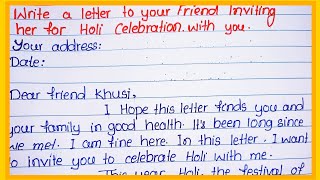 Write a letter to your Friend Inviting
her for Holi Celebration. With you.
Your address:
Date:
Dear friend Khusi,
I Hope this letter finds you and
your family in good health. It's been long since
we met. I am fine here. In this letter. I want
to invite you to celebrate Holi with me.
This year Holi, the festival of